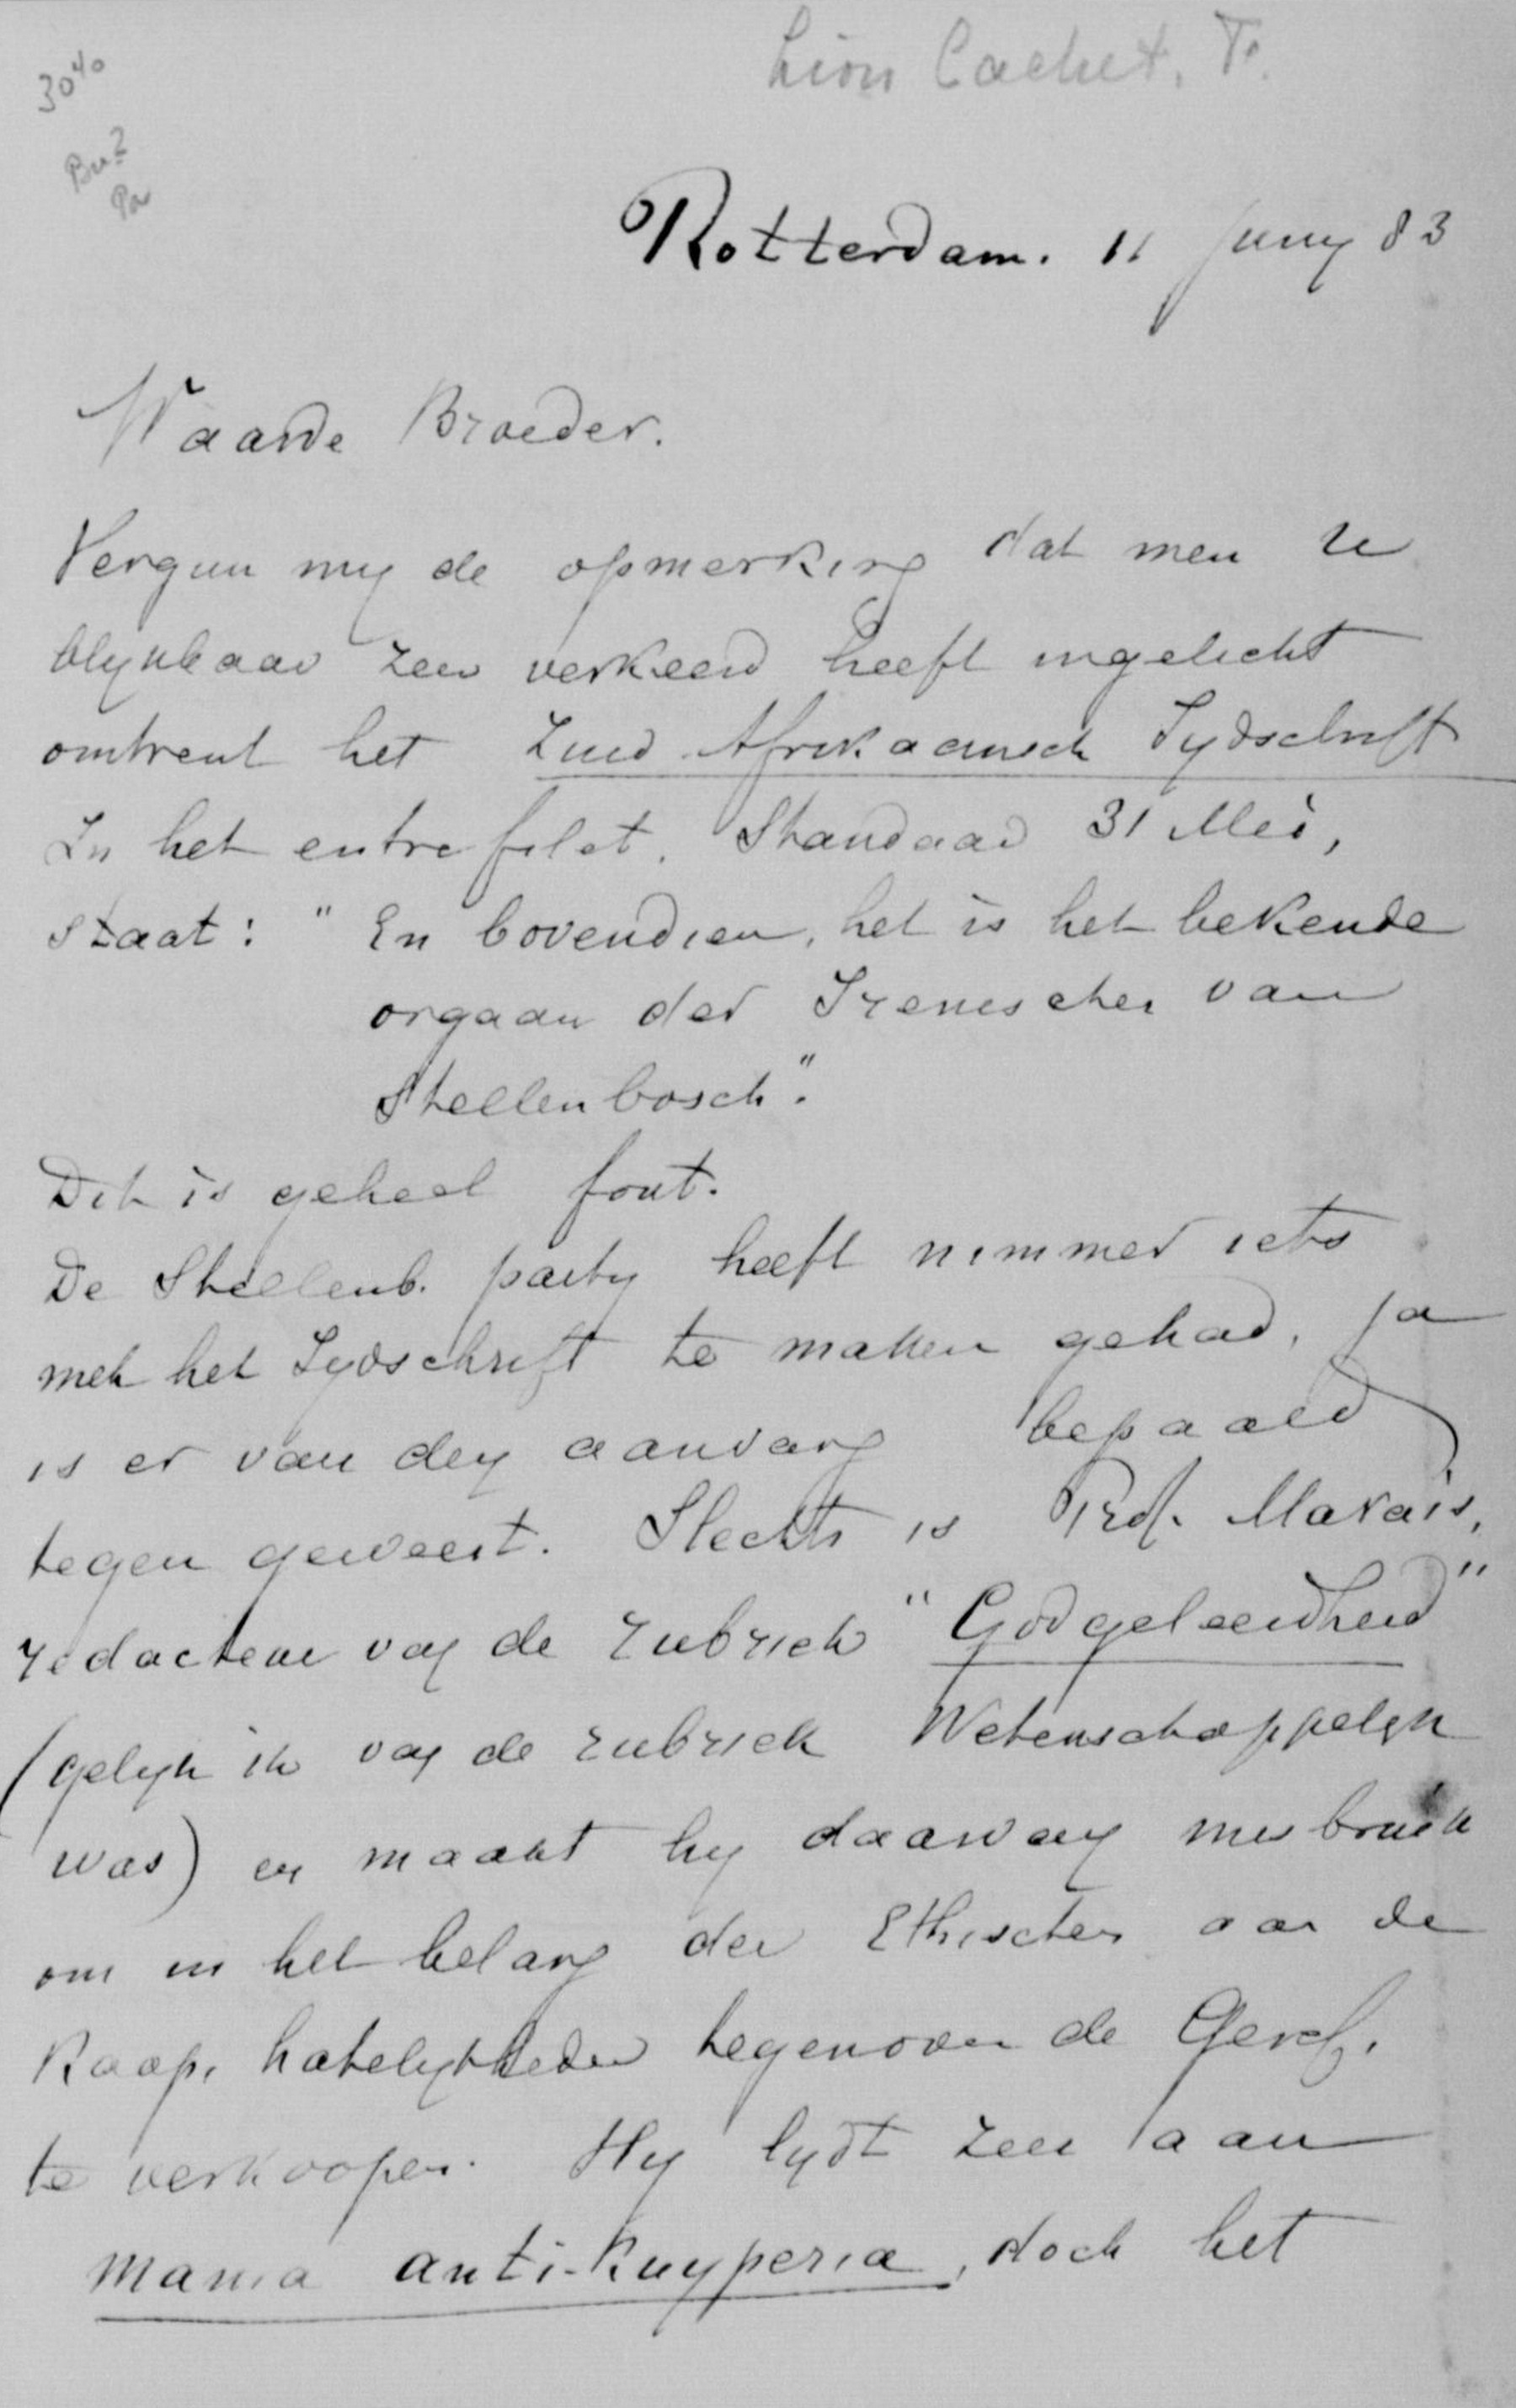 Lion Cachet, F.
3040
Br?
Pa
Rotterdam. 11 Juny 83
Waarde Broeder.
Vergun my de opmerking dat men U
blykbaar zeer verkeerd heeft ingelicht
omtrent het Zuid Afrikaansch Tydschrift
In het entrefilet. Standaard 31 Mei,
staat: "En bovendien, het is het bekende
orgaan der Irenischen van
Stellenbosch".
Dit is geheel fout.
De Stellenb. party heeft nimmer iets
met het Tydschrift te maken gehad, ja
is er van den aanvang bepaald
tegen geweest. Slechts is Prof. Marais,
redacteur van de rubriek "Godgeleerdheid"
(gelyk ik van de rubriek Wetenschappelyk
was) en maakt hy daarvan misbruik
om in het belang der Ethischen aan de
Kaap, hatelykheden tegenover de Geref.
te verkoopen. Hy lydt zeer aan
mania anti-Kuyperia, doch het